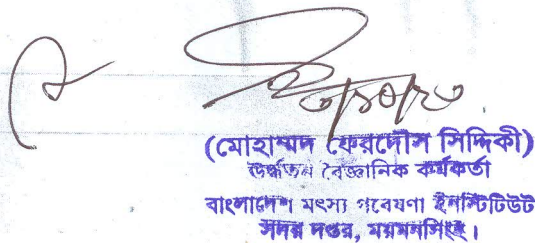 (মোহাম্মদ ফেরদৌস সিদ্দিকী)
উর্দ্ধতন বৈজ্ঞানিক কর্মকর্তা
বাংলাদেশ মৎস্য গবেষণা ইনস্টিটিউট
সদর দপ্তর, ময়মনসিংহ।